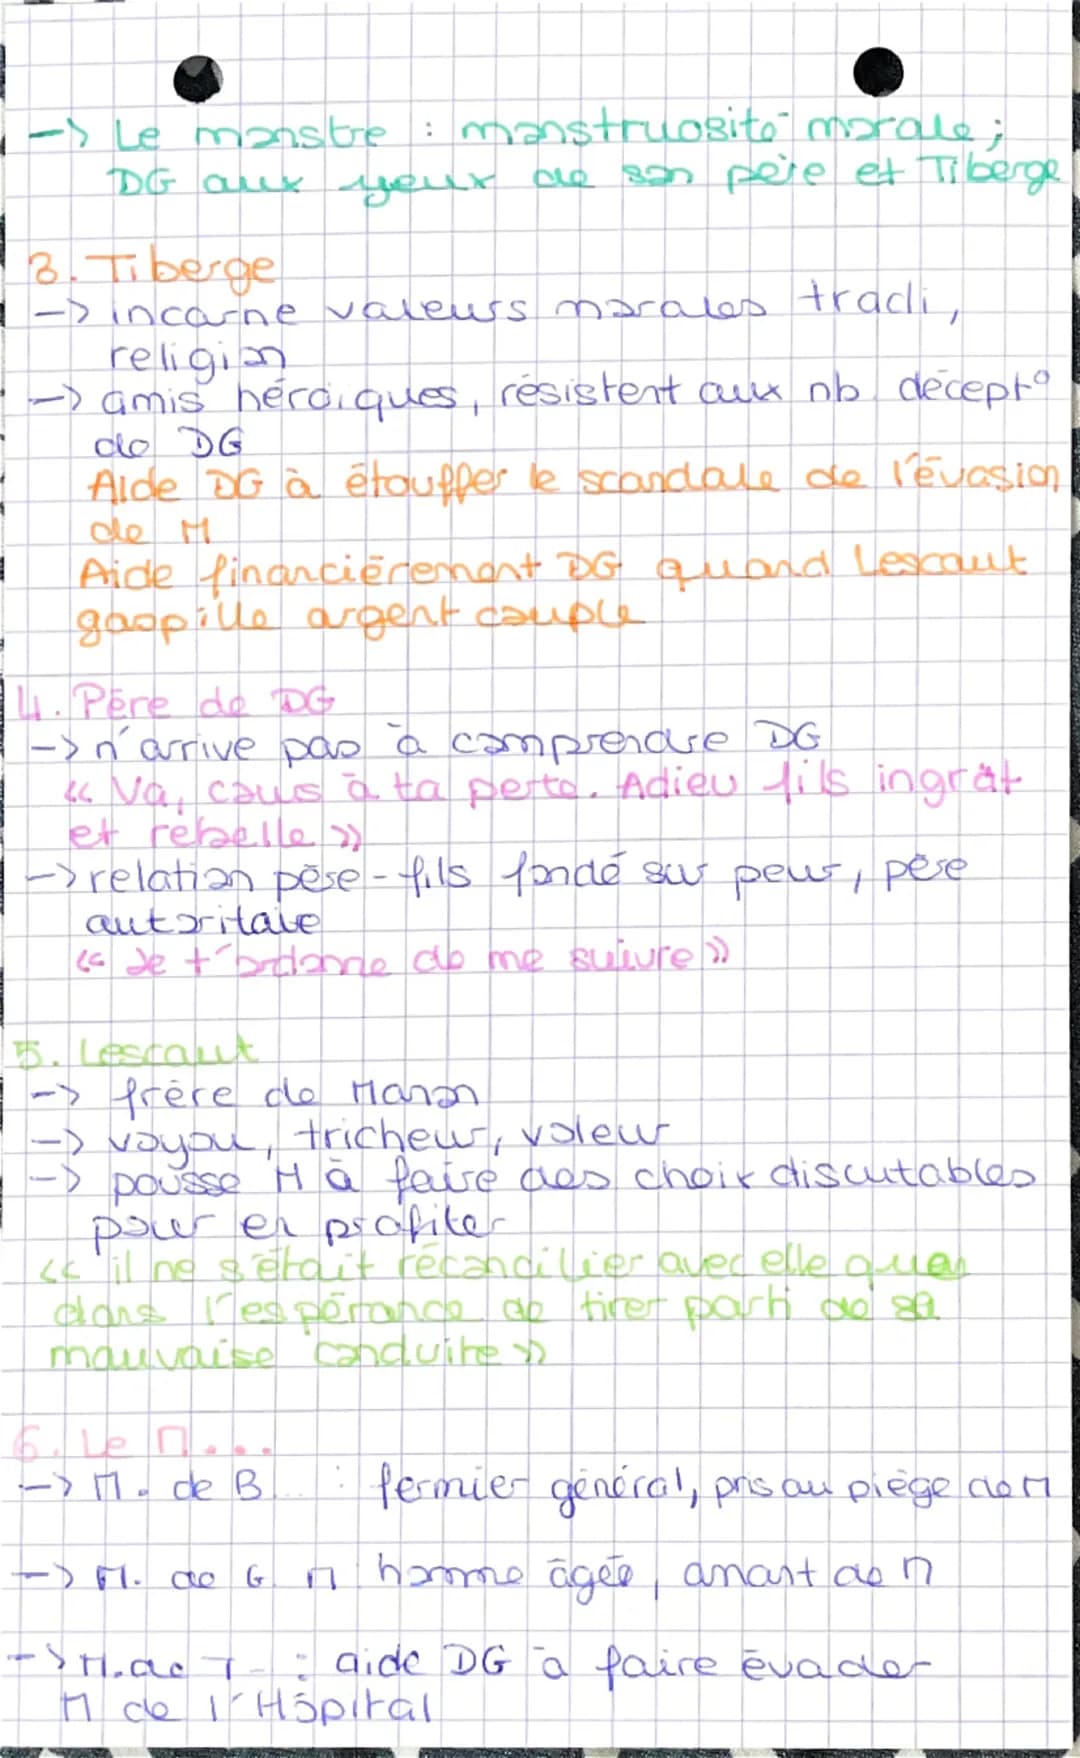 -> Le monstre : monstruosité morale ;
DG aux yeux de son père et Tiberge
3. Tiberge
-> incarne valeurs morales tradi,
religion
-> amis héroïques, résistent aux nb décept°
de DG
Aide DG à étouffer le scandale de l'évasion
de M
Aide financièrement DG quand Lescaut
gaspille argent couple
4. Père de DG
-> n'arrive pas à comprendre DG
« Va, cours à ta perte. Adieu fils ingrat
et rebelle »
-> relation père-fils fondé sur peur, père
autoritaire
« Je t'ordonne de me suivre »
5. Lescaut
-> frère de Manon
-> voyou, tricheur, voleur
-> pousse M à faire des choix discutables
pour en profiter
« il ne s'était réconcilier avec elle que
dans l'espérance de tirer parti de sa
mauvaise conduite »
6. Le M...
-> M. de B... : fermier général, pris au piège de M
-> M. de G M homme âgée, amant de M
-> M. de T... : aide DG à faire évader
M de l'Hôpital